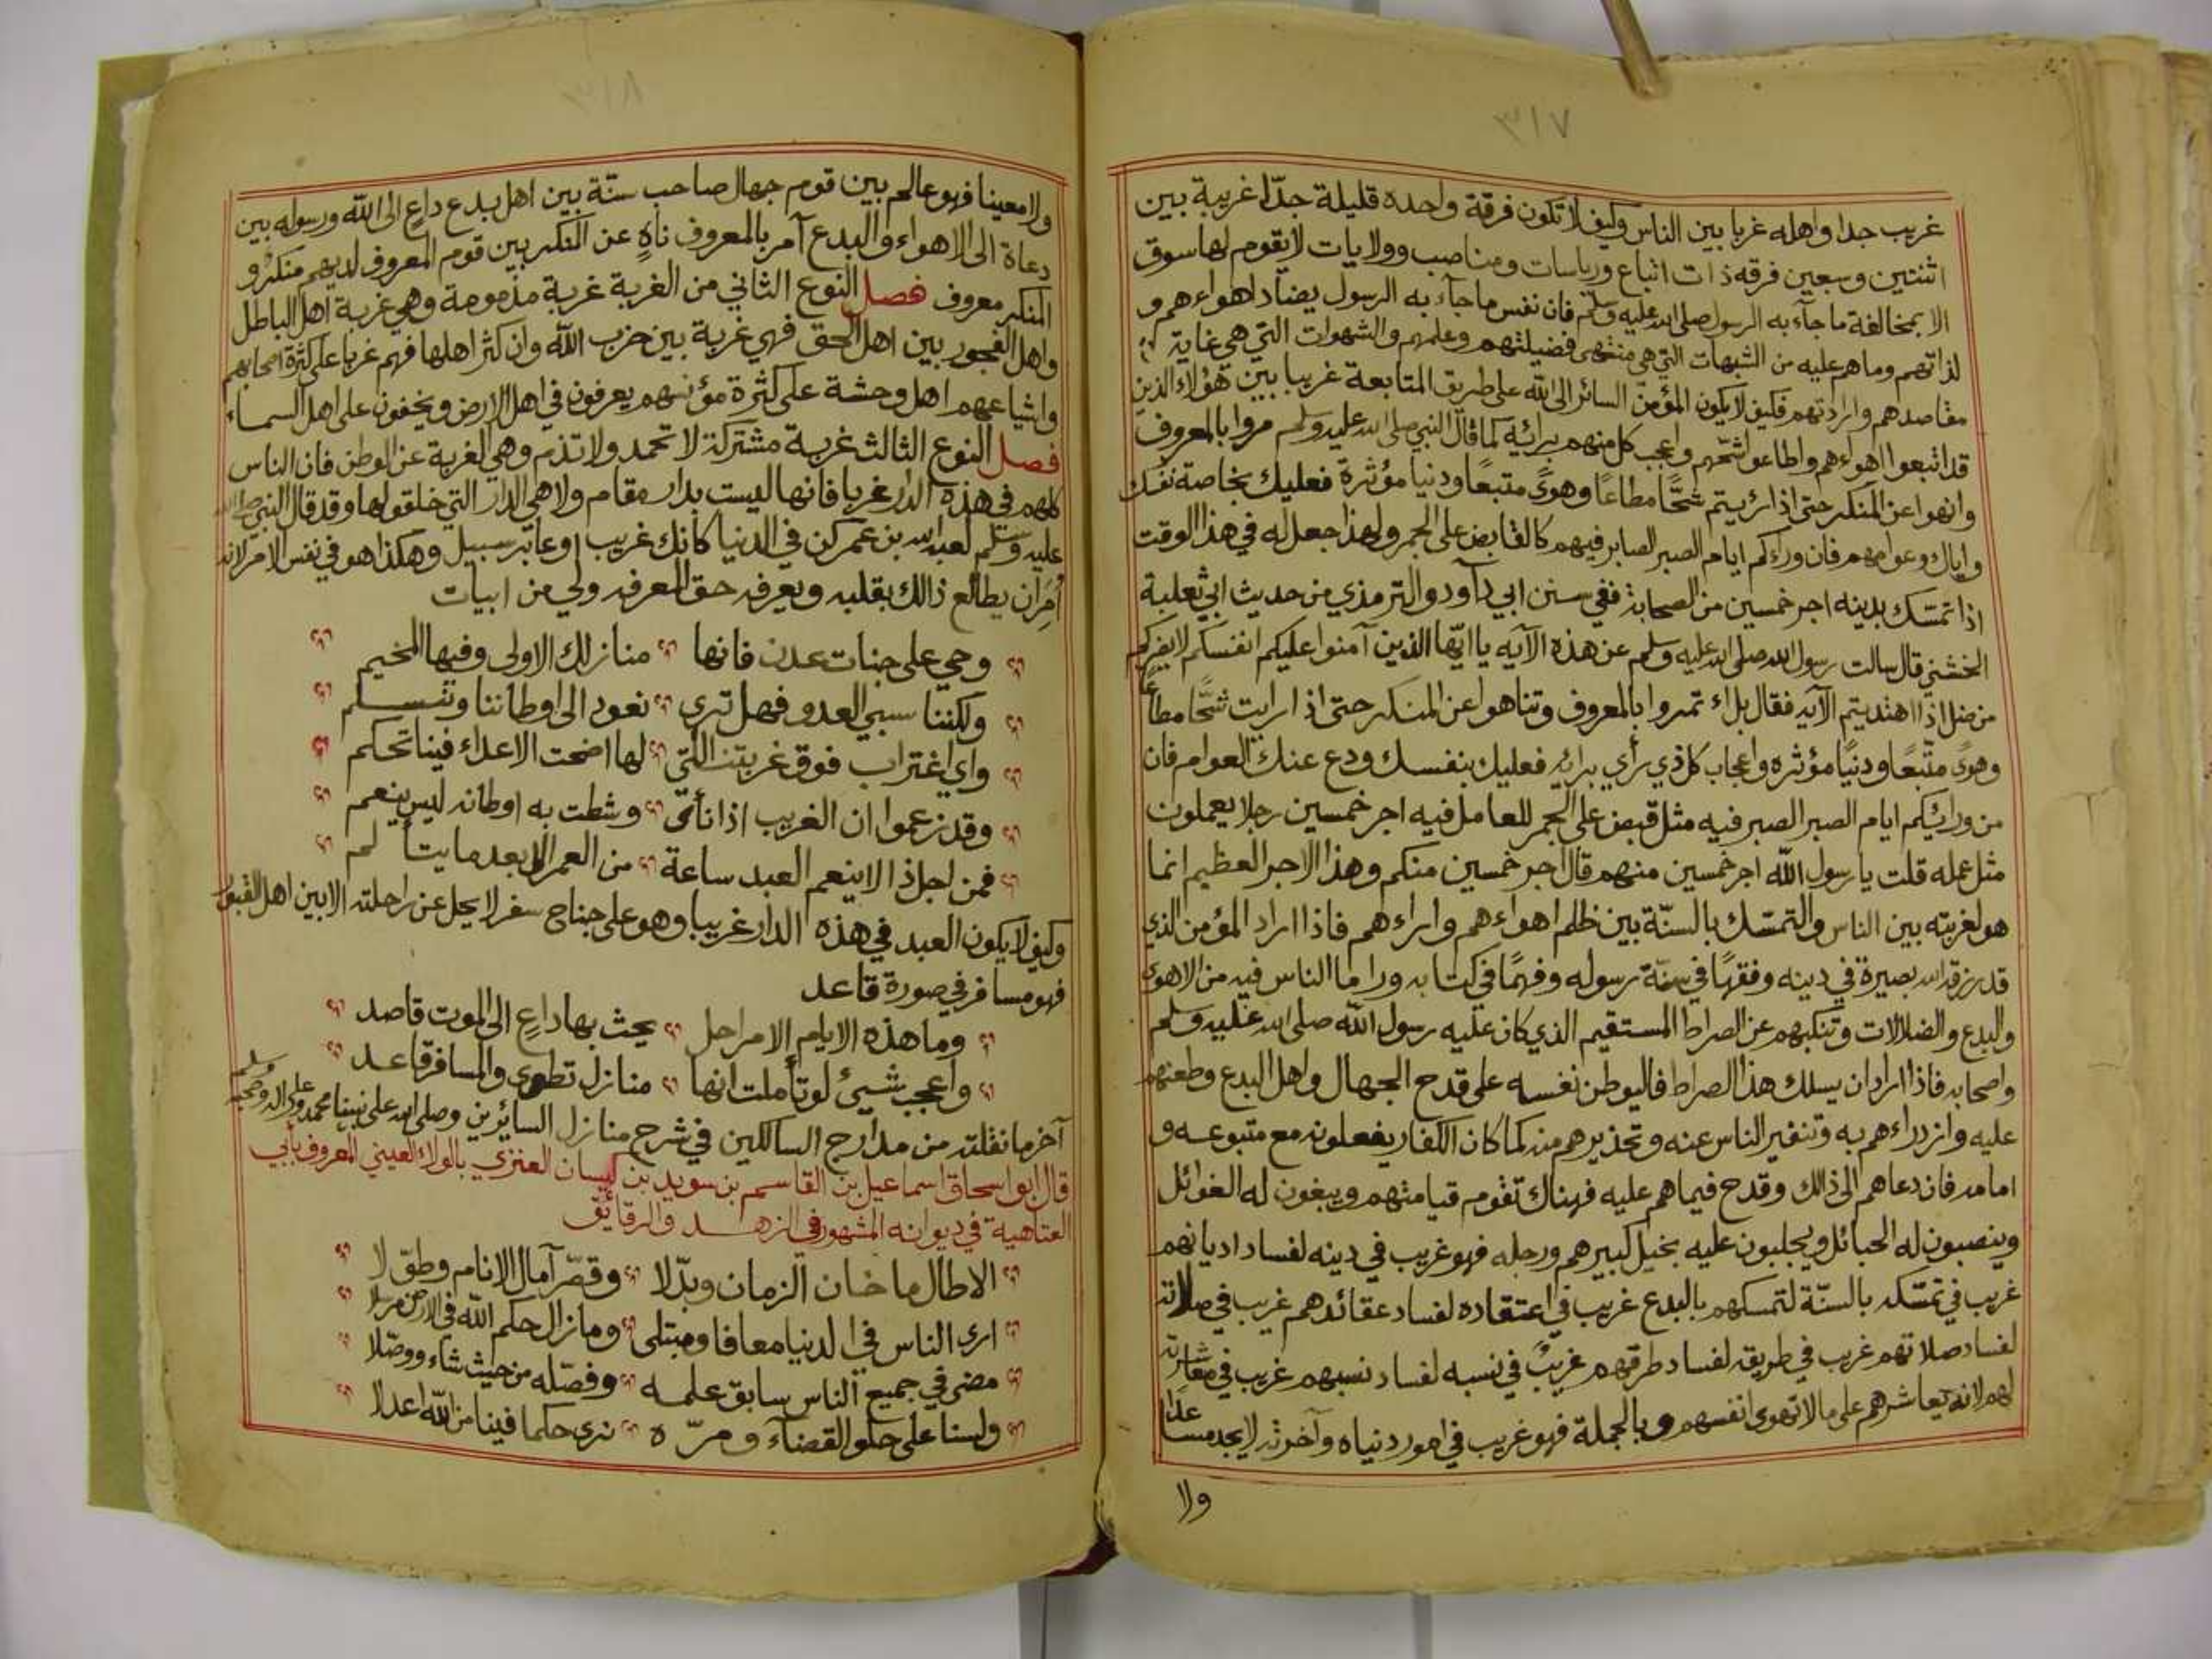 ٣١٧
غريب جدا واهله غربا بين الناس وكيف لا تكون فرقة واحده قليلة جدّا غريبة بين
اثنتين وسبعين فرقه ذات اتباع ورياسات ومناصب وولايات لا يقوم لها سوق
الا بمخالفة ما جآء به الرسول صلى الله عليه وسلم فان نفس ما جآء به الرسول يضآد اهواءهم و
لذاتهم وما هم عليه من الشبهات التي هي منتهى فضيلتهم وعلمهم والشهوات التي هي غاية
مقاصدهم وارادتهم فكيف لا يكون المؤمن السائر الى الله على طريق المتابعة غريبا بين هؤلاء الذين
قد اتبعوا اهواءهم واطاعوا شحّهم واعجب كل منهم برائه كما قال النبي صلى الله عليه وسلم مروا بالمعروف
وانهوا عن المنكر حتى اذا رئيتم شحًّا مطاعًا وهوىً متبعًا ودنيا مؤثرة فعليك بخاصة نفسك
واياك وعوامهم فان وراءكم ايام الصبر الصابر فيهم كالقابض على الجمر ولهذا جعل له في هذا الوقت
اذا تمسّك بدينه اجر خمسين من الصحابة ففي سنن ابي دآود والترمذي من حديث ابي ثعلبة
الخشني قال سالت رسول الله صلى الله عليه وسلم عن هذه الآيه يا ايّها الذين آمنوا عليكم انفسكم لا يضركم
من ضل اذا اهتديتم الآيه فقال بلاء تمروا بالمعروف وتناهوا عن المنكر حتى اذا رايت شحًّا مطاعًا
وهوىً متّبعًا ودنيًا مؤثره واعجاب كل ذي رأي برائه فعليك بنفسك ودع عنك العوام فان
من ورائيكم ايام الصبر الصبر فيه مثل قبض على الجمر للعامل فيه اجر خمسين رجلا يعملون
مثل عمله قلت يا رسول الله اجر خمسين منهم قال اجر خمسين منكم وهذا الاجر العظيم انما
هو لغربته بين الناس والتمسّك بالسنّة بين ظلم اهواءهم واراءهم فاذا اراد المؤمن الذي
قد رزقه الله بصيرة في دينه وفقهًا في سنّة رسوله وفهمًا في كتابه وراٰ ما الناس فيه من الاهوى
والبدع والضلالات وتنكبهم عن الصراط المستقيم الذي كان عليه رسول الله صلى الله عليه وسلم
واصحابه فاذا اراد ان يسلك هذا الصراط فاليوطن نفسه على قدح الجهال واهل البدع وطعنهم
عليه وازدراءهم به وتنفير الناس عنه وتحذيرهم منه كما كان الكفار يفعلونه مع متبوعه و
امامه فان دعاهم الى ذالك وقدح فيما هم عليه فهناك تقوم قيامتهم ويبغون له الغوائل
وينصبون له الحبائل ويجلبون عليه بخيل كبيرهم ورجله فهو غريب في دينه لفساد اديانهم
غريب في تمسّكه بالسنّة لتمسكهم بالبدع غريب في اعتقاده لفساد عقائدهم غريب في صلاته
لفساد صلاتهم غريب في طريقه لفساد طرقهم غريبٌ في نسبه لفساد نسبهم غريب في معاشرته
لهم لانه يعاشرهم على ما لا تهوى انفسهم وبالجملة فهو غريب في امور دنياه وآخرته لا يجد مساعدًا
ولا
٣١٨
ولا معينا فهو عالم بين قوم جهال صاحب سنّة بين اهل بدع داعٍ الى الله ورسوله بين
دعاة الى الاهواء والبدع آمر بالمعروف ناهٍ عن المنكر بين قوم المعروف لديهم منكر و
المنكر معروف فصل النوع الثاني من الغربة غربة مذمومة وهي غربة اهل الباطل
واهل الفجور بين اهل الحق فهي غربة بين حزب الله وان كثر اهلها فهم غربا على كثرة اصحابهم
واشياعهم اهل وحشة على كثرة مؤنسهم يعرفون في اهل الارض ويخفون على اهل السماء
فصل النوع الثالث غربة مشتركة لا تحمد ولا تذم وهي الغربة عن الوطن فان الناس
كلهم في هذه الدار غربا فانها ليست بدار مقام ولا هي الدار التي خلقو لها وقد قال النبي صلى الله
عليه وسلم لعبد الله بن عمر كن في الدنيا كانك غريب او عابر سبيل وهكذا هو في نفس الامر لانه
أُمِرَ ان يطالع ذالك بقلبه ويعرفه حق المعرفه ولي من ابيات
وحي على جنات عدن فانها منازلك الاولى وفيها المخيم
ولكننا سبي العدو فهل ترى نعود الى اوطاننا ونسلم
واي اغتراب فوق غربتنا التي لها اضحت الاعداء فينا تحكم
وقد زعموا ان الغريب اذا نأى وشطت به اوطانه ليس ينعم
فمن اجل ذا لا ينعم العبد ساعة من العمر الا بعد ما يتألم
وكيف لا يكون العبد في هذه الدار غريبا وهو على جناح سفر لا يحل عن راحلته الا بين اهل القبور
فهو مسافر في صورة قاعد
وما هذه الايام الا مراحل يحث بها داعٍ الى الموت قاصد
واعجب شيئ لو تأملت انها منازل تطوى والمسافر قاعد
آخر ما نقلته من مدارج السالكين في شرح منازل السائرين وصلى الله على نبينا محمد وعلى اله وصحبه وسلم
قال ابو اسحاق اسماعيل بن القاسم بن سويد بن كيسان العنزي بالولاء العيني المعروف بأبي
العتاهية في ديوانه المشهور في الزهد والرقائق
الا طال ما خان الزمان وبدّلا وقصّر آمال الانام وطوّلا
ارى الناس في الدنيا معافا ومبتلى وما زال حكم الله في الارض مرسلا
مضى في جميع الناس سابق علمه وفصّله من حيث شاء ووصّلا
ولسنا على حلو القضآء ومرّه نرى حكما فينا من الله اعدلا